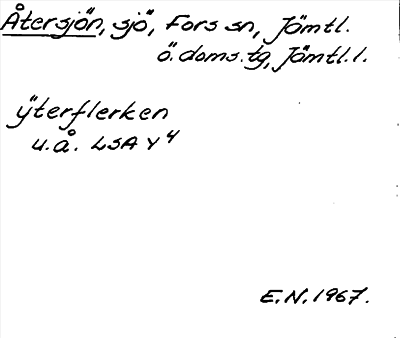 Återsjön, sjö, Fors sn, Jämtl.
ö. doms.tg, Jämtl.l.
ÿterflerken
u.å. LSA Y 4
E.N. 1967.